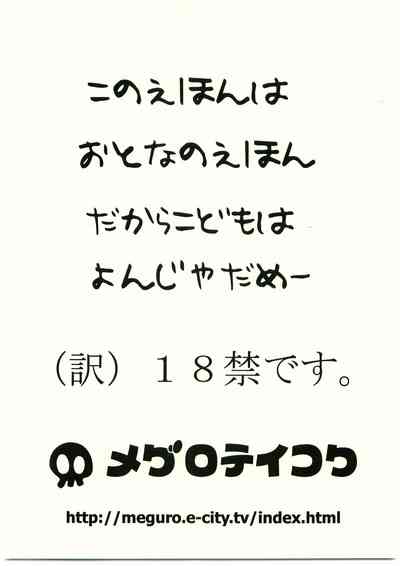 このえほんは
おとなのえほん
だからこどもは
よんじゃだめー
（訳）１８禁です。
メグロテイコク
http://meguro.e-city.tv/index.html